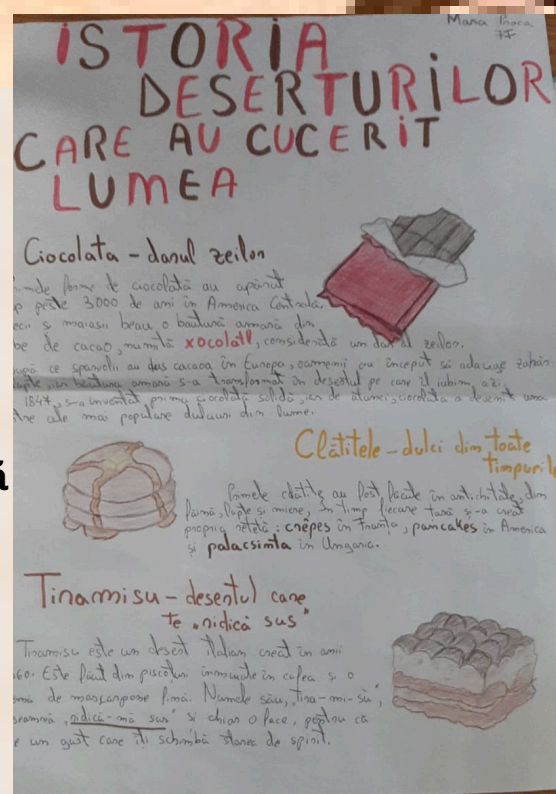 Maria
ISTORIA
DESERTURILOR
CARE AU CUCERIT
LUMEA
Ciocolata - darul zeilor
forme de ciocolată au apărut
peste 3000 de ani în America Centrală.
și maiașii beau o băutură amară din
be de cacao, numită xocolatl, considerată un dar al zeilor.
ce spaniolii au dus cacaoa în Europa, oamenii au început să adauge zahăr
lapte, iar băutura amară s-a transformat în desertul pe care îl iubim, azi.
1847, s-a inventat prima ciocolată solidă, iar de atunci, ciocolata a devenit una
tre ele mai populare dulciuri din lume.
Clătitele - dulci din toate
timpuril
Primele clătite au fost făcute în antichitate, din
făină, lapte și miere, în timp fiecare țară și-a creat
propria rețetă: crêpes în Franța, pancakes în America
și palacsinta în Ungaria.
Tiramisu - desertul care
te „ridică sus"
Tiramisu este un desert italian creat în anii
60. Este făcut din pișcoturi înmuiate în cafea și o
mă de mascarpone fină. Numele său, „tira-mi-sù",
seamnă „ridică-mă sus" și chiar o face, pentru că
e un gust care îți schimbă starea de spirit.
ă